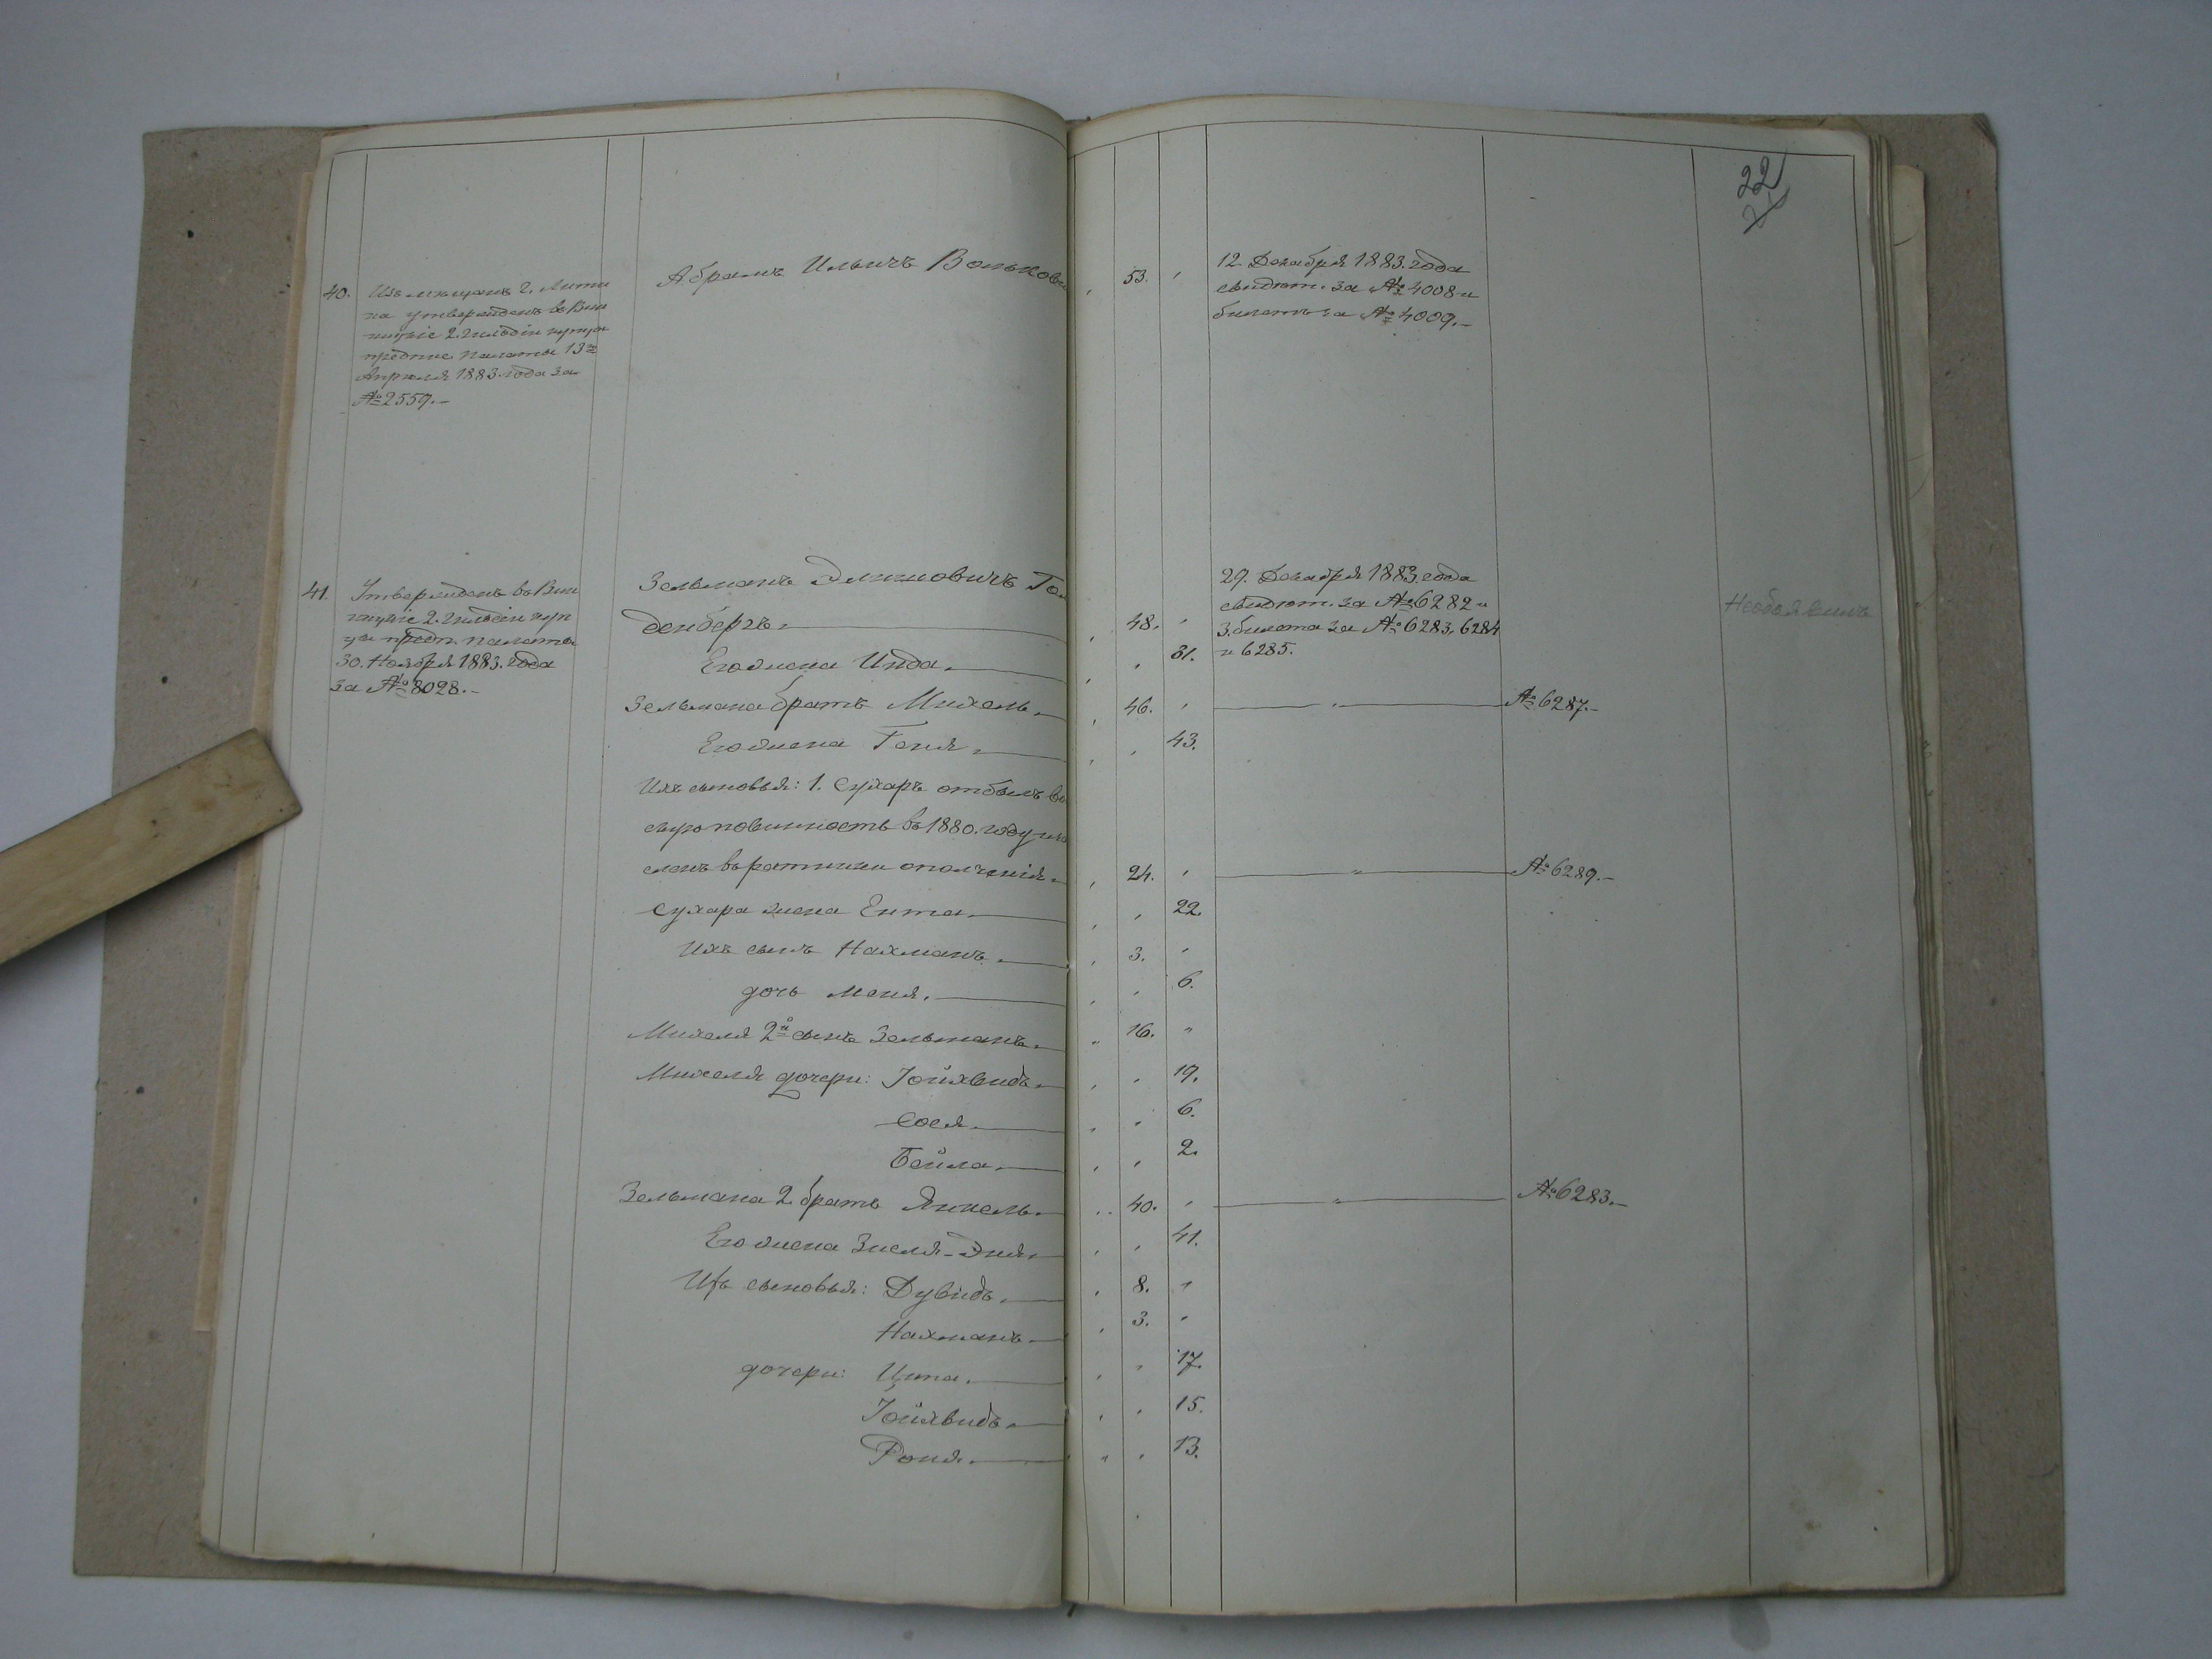 22
40.
Изъ мѣщанъ г. Лити
на утвержденъ въ Вин
ницкіе 2. гильдіи купцы
предпис. палаты 13го
Апрѣля 1883. года за
№ 2559.-
Абрамъ Ильичъ Вольков
53.
12 Декабря 1883. года
свидѣт. за № 4008 и
билетъ за № 4009.-
41.
Утвержденъ въ Вин
ницкіе 2. гильдіи куп
цы предп. палаты
30. Ноября 1883. года
за № 8028.-
Зельманъ Гол
денбергъ.
48.
29. Декабря 1883. года
свидѣт. за № 6282 и
3. билета за № 6283, 6284
и 6285.
Его жена Инда.
31.
Зельмана братъ Михель.
46.
№ 6287.-
Его жена Геня.
43.
Ихъ сыновья: 1. Сухаръ отбылъ во
скую повинность въ 1880. году и
сленъ въ ратники ополченія.
24.
№ 6289.-
Сухара жена Ента.
22.
Ихъ сынъ Нахманъ.
3.
дочь Меня.
6.
Михеля 2й сынъ Зельманъ.
16.
Михеля дочери: Іойхвидъ.
19.
Сося.
6.
Бейла.
2.
Зельмана 2. братъ Янкель.
40.
№ 6283.-
Его жена Зисля-Эня.
41.
Ихъ сыновья: Дувидъ.
8.
Нахманъ
3.
дочери: Ципа.
17.
Іойхвидъ.
15.
Роня.
13.